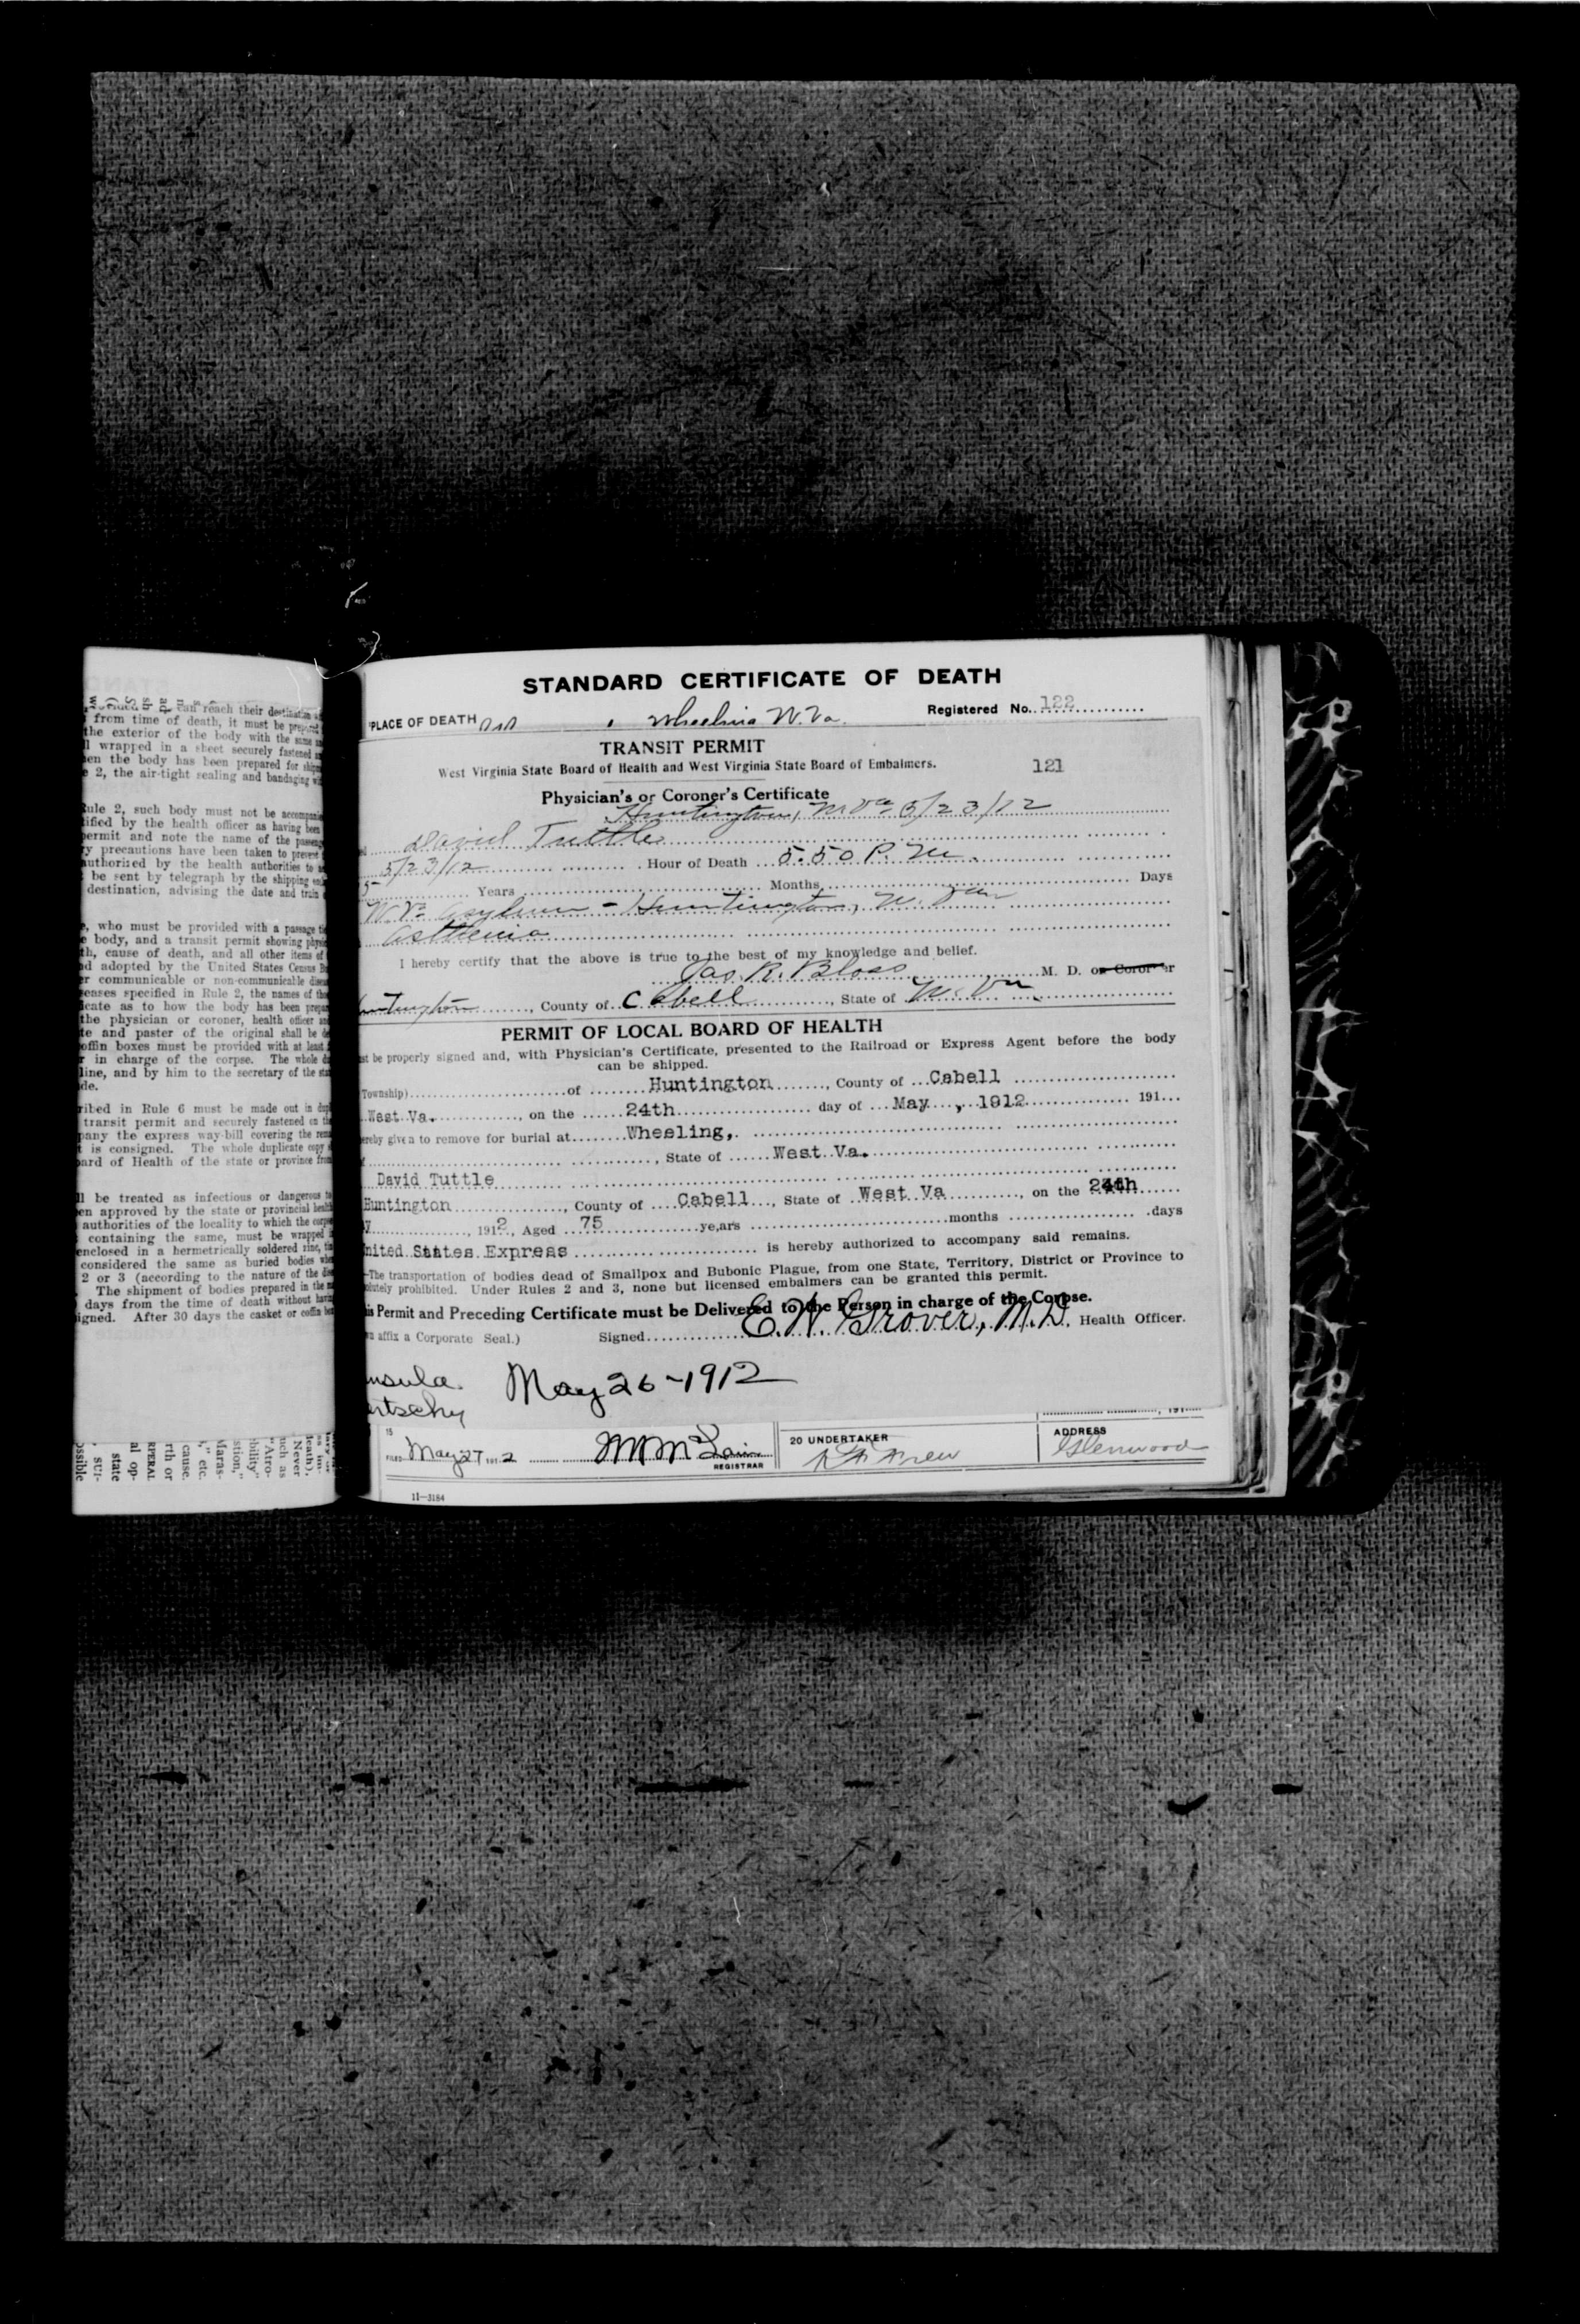 can reach their destination
from time of death, it must be prepared
the exterior of the body with the same
wrapped in a sheet securely fastened
en the body has been prepared for
2, the air-tight sealing and bandaging
Rule 2, such body must not be
ified by the health officer as having been
permit and note the name of the
ry precautions have been taken to prevent
authorized by the health authorities to
be sent by telegraph by the shipping
destination, advising the date and train
, who must be provided with a passage
e body, and a transit permit showing
th, cause of death, and all other items of
d adopted by the United States Census
er communicable or non-communicable
eases specified in Rule 2, the names of the
icate as to how the body has been
the physician or coroner, health officer
te and paster of the original shall be
offin boxes must be provided with at least
r in charge of the corpse. The whole
line, and by him to the secretary of the
de.
ribed in Rule 6 must be made out in
transit permit and securely fastened on
pany the express way-bill covering the
t is consigned. The whole duplicate copy
ard of Health of the state or province from
ll be treated as infectious or dangerous
en approved by the state or provincial
authorities of the locality to which the
containing the same, must be wrapped
enclosed in a hermetrically soldered zinc,
considered the same as buried bodies
2 or 3 (according to the nature of the
The shipment of bodies prepared in the
days from the time of death without
igned. After 30 days the casket or coffin
STANDARD CERTIFICATE OF DEATH
PLACE OF DEATH Wheeling W. Va. Registered No. 122
TRANSIT PERMIT
West Virginia State Board of Health and West Virginia State Board of Embalmers. 121
Physician's or Coroner's Certificate
Huntington, W Va 5/23/12
David Tuttle
5/23/12 Hour of Death 5.50 P. M.
5 Years Months Days
W. Va Asylum - Huntington, W. Va
Asthenia
I hereby certify that the above is true to the best of my knowledge and belief.
Jas. R. Bloss M. D. or Coroner
untington, County of Cabell, State of W. Va
PERMIT OF LOCAL BOARD OF HEALTH
st be properly signed and, with Physician's Certificate, presented to the Railroad or Express Agent before the body
can be shipped.
Township) of Huntington, County of Cabell
West Va. on the 24th day of May, 1912 191
ereby given to remove for burial at Wheeling,
, State of West Va.
David Tuttle
Huntington, County of Cabell, State of West Va, on the 24th
y, 1912, Aged 75 years months days
nited States Express is hereby authorized to accompany said remains.
-The transportation of bodies dead of Smallpox and Bubonic Plague, from one State, Territory, District or Province to
olutely prohibited. Under Rules 2 and 3, none but licensed embalmers can be granted this permit.
is Permit and Preceding Certificate must be Delivered to the Person in charge of the Corpse.
affix a Corporate Seal.) Signed E. W. Grover, M. D. Health Officer.
nsula May 26-1912
ertschy
15
FILED May 27 1912 REGISTRAR
20 UNDERTAKER
ADDRESS
Glenwood
11-3184